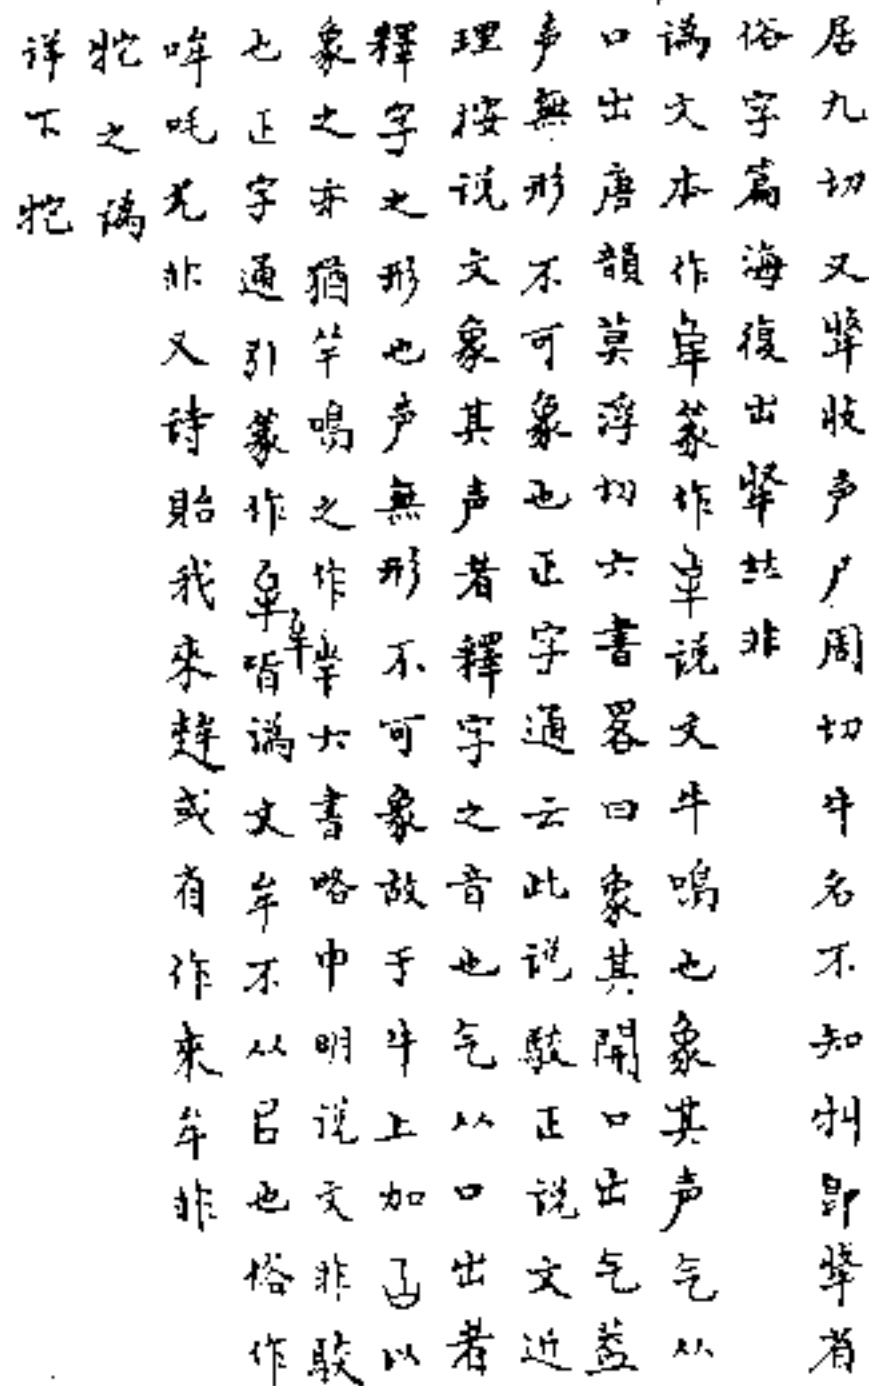 居九切又犨收声尸周切牛名不知㸯即犨省
俗字篇海復出犨並非
譌文本作牟篆作牟说文牛鳴也象其声气从
口出唐韻莫浮切六書畧曰象其開口出气葢
声無形不可象也正字通云此说駮正说文近
理按说文象其声者釋字之音也气从口出者
釋字之形也声無形不可象故于牛上加以
象之亦猶芈鳴之作芈六書略申明说文非駮
也正字通引篆作牟皆譌文牟不从㠯也俗作
哞吽尤非又詩貽我來或省作來牟非
牠之譌
详下牠